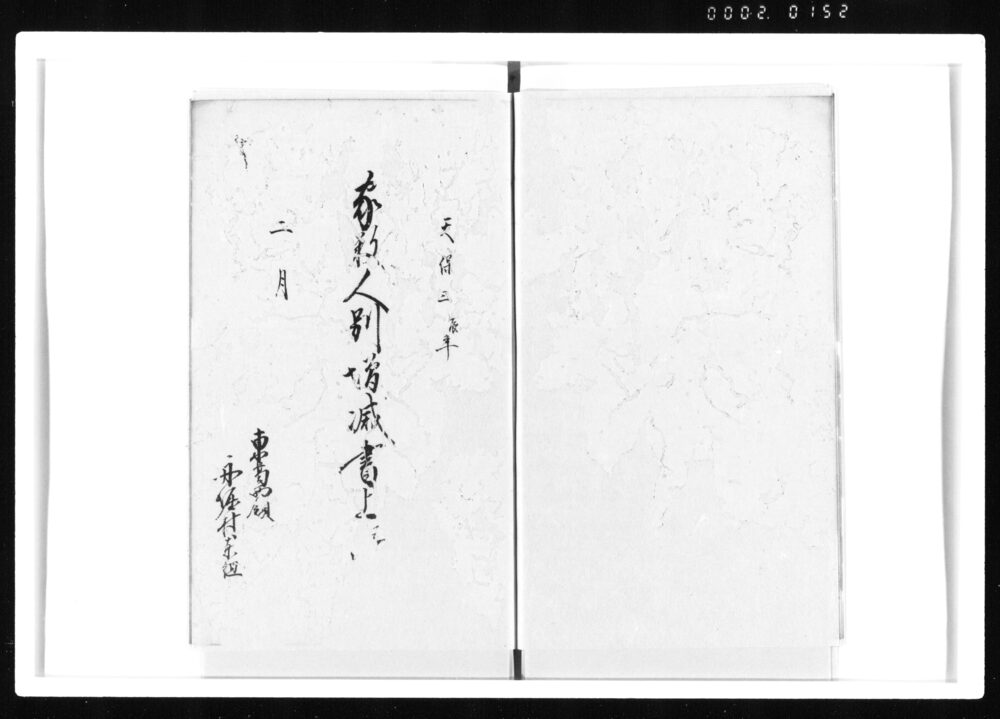 0002. 0152
天保三辰年
家数人別増減書上
二月
東葛西領
舟堀村